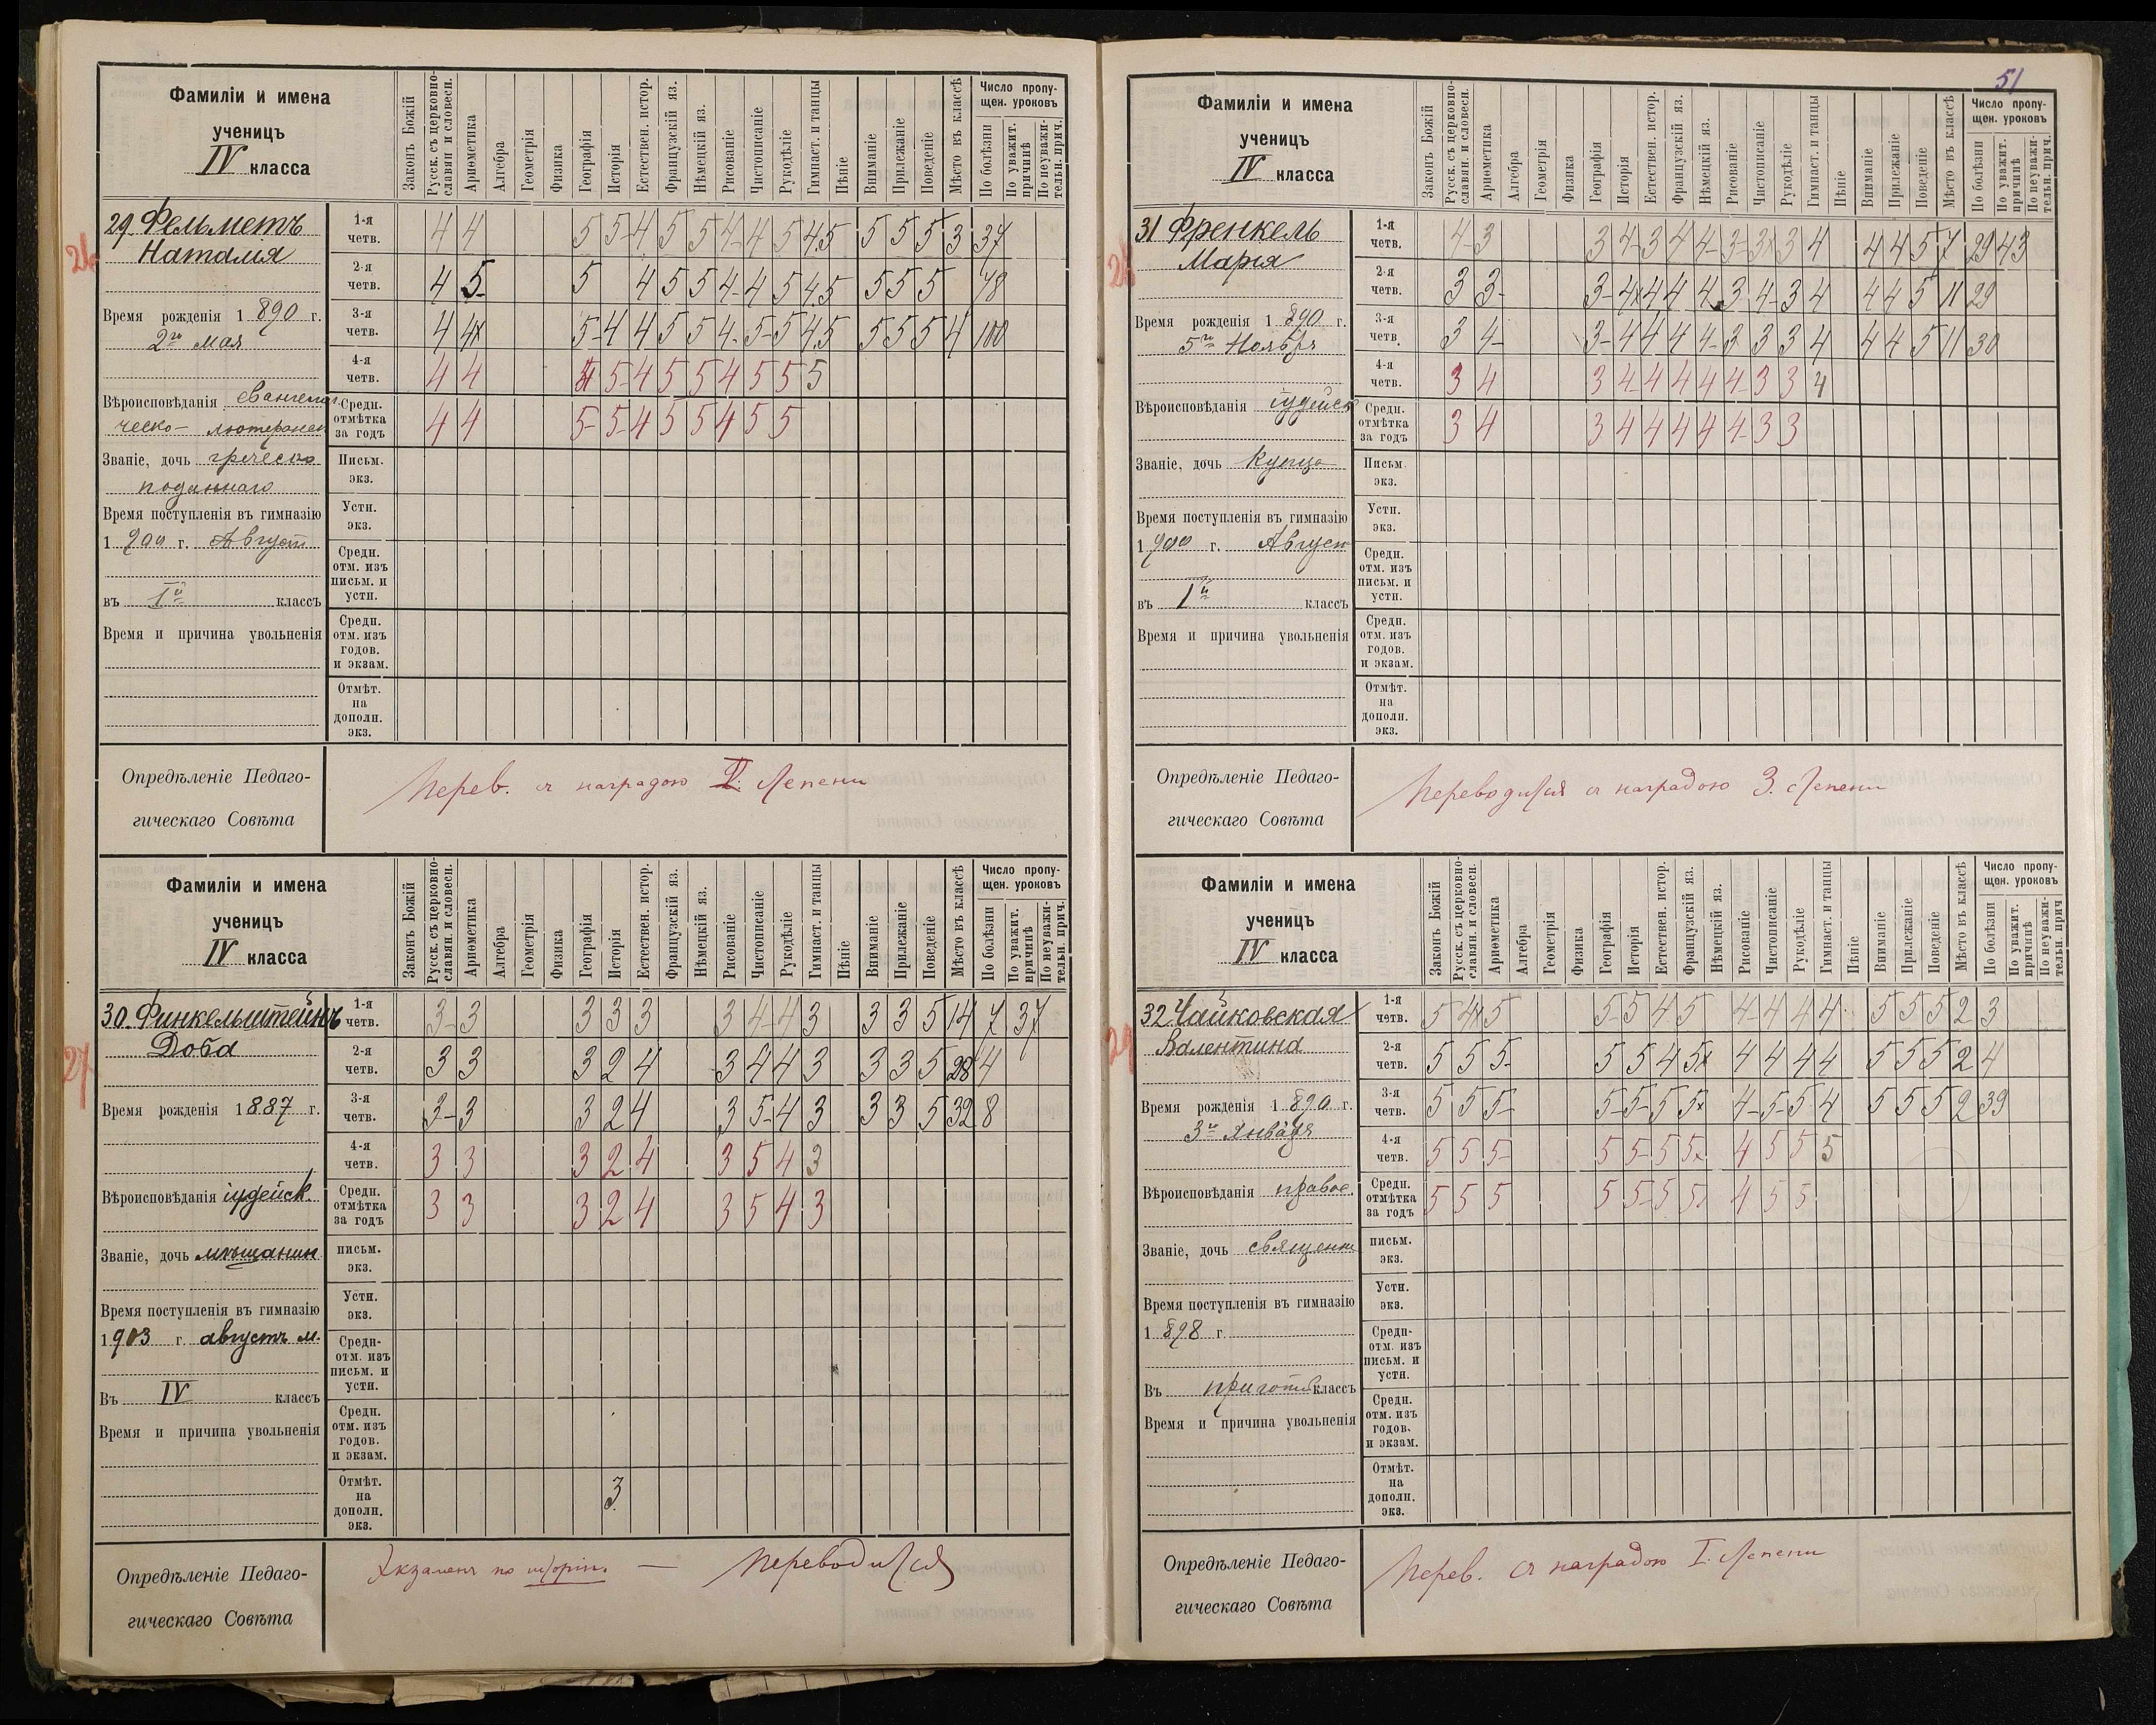 51
Фамиліи и имена
ученицъ
IV класса
Законъ Божій
Русск. съ церковно-
славян. и словесн.
Ариѳметика
Алгебра
Геометрія
Физика
Географія
Исторія
Естествен. истор.
Французскій яз.
Нѣмецкій яз.
Рисованіе
Чистописаніе
Рукодѣліе
Гимнаст. и танцы
Пѣніе
Вниманіе
Прилежаніе
Поведеніе
Мѣсто въ классѣ
Число пропу-
щен. уроковъ
По болѣзни
По уважит.
причинѣ
По неуважи-
тельн. прич.
29. Фельметъ
Наталія
26
Время рожденія 1890 г.
2го мая
Вѣроисповѣданія евангели-
ческо-лютеранск
Званіе, дочь греческо
подданнаго
Время поступленія въ гимназію
1900 г. Август
въ Iй классъ
Время и причина увольненія
1-я четв. 4 4 5 5 4 5 5 4 4 5 4 5 5 5 5 3 37
2-я четв. 4 5 5 4 5 5 4 4 5 4 5 5 5 5 48
3-я четв. 4 4 5 4 4 5 5 4 5 5 4 5 5 5 5 4 100
4-я четв. 4 4 4 5 4 5 5 4 5 5 5
Средн. отмѣтка за годъ 4 4 5 5 4 5 5 4 5 5
Письм. экз.
Устн. экз.
Средн. отм. изъ письм. и устн.
Средн. отм. изъ годов. и экзам.
Отмѣт. на дополн. экз.
Опредѣленіе Педаго-
гическаго Совѣта
Перев. съ наградою II. степени
Фамиліи и имена
ученицъ
IV класса
Законъ Божій
Русск. съ церковно-
славян. и словесн.
Ариѳметика
Алгебра
Геометрія
Физика
Географія
Исторія
Естествен. истор.
Французскій яз.
Нѣмецкій яз.
Рисованіе
Чистописаніе
Рукодѣліе
Гимнаст. и танцы
Пѣніе
Вниманіе
Прилежаніе
Поведеніе
Мѣсто въ классѣ
Число пропу-
щен. уроковъ
По болѣзни
По уважит.
причинѣ
По неуважи-
тельн. прич.
30. Финкельштейнъ
Доба
27
Время рожденія 1887 г.
Вѣроисповѣданія іудейск.
Званіе, дочь мѣщанин
Время поступленія въ гимназію
1903 г. августъ м.
Въ IV классъ
Время и причина увольненія
1-я четв. 3 3 3 3 3 3 4 4 3 3 3 5 14 7 37
2-я четв. 3 3 3 2 4 3 4 4 3 3 3 5 28 4
3-я четв. 3 3 3 2 4 3 5 4 3 3 3 5 32 8
4-я четв. 3 3 3 2 4 3 5 4 3
Средн. отмѣтка за годъ 3 3 3 2 4 3 5 4 3
письм. экз.
Устн. экз.
Средн- отм. изъ письм. и устн.
Средн. отм. изъ годов. и экзам.
Отмѣт. на дополн. экз. 3
Опредѣленіе Педаго-
гическаго Совѣта
Экзаменъ по исторіи. — Переводится
Фамиліи и имена
ученицъ
IV класса
Законъ Божій
Русск. съ церковно-
славян. и словесн.
Ариѳметика
Алгебра
Геометрія
Физика
Географія
Исторія
Естествен. истор.
Французскій яз.
Нѣмецкій яз.
Рисованіе
Чистописаніе
Рукодѣліе
Гимнаст. и танцы
Пѣніе
Вниманіе
Прилежаніе
Поведеніе
Мѣсто въ классѣ
Число пропу-
щен. уроковъ
По болѣзни
По уважит.
причинѣ
По неуважи-
тельн. прич.
31 Френкель
Марія
28
Время рожденія 1890 г.
5го Ноября
Вѣроисповѣданія іудейск
Званіе, дочь купца
Время поступленія въ гимназію
1900 г. Август
въ Iй классъ
Время и причина увольненія
1-я четв. 4 3 3 4 3 4 4 3 3 3 4 4 4 5 7 29 43
2-я четв. 3 3 3 4 4 4 4 3 4 3 4 4 4 5 11 29
3-я четв. 3 4 3 4 4 4 4 3 3 3 4 4 4 5 11 30
4-я четв. 3 4 3 4 4 4 4 4 3 3 4
Средн. отмѣтка за годъ 3 4 3 4 4 4 4 4 3 3
Письм. экз.
Устн. экз.
Средн. отм. изъ письм. и устн.
Средн. отм. изъ годов. и экзам.
Отмѣт. на дополн. экз.
Опредѣленіе Педаго-
гическаго Совѣта
Переводится съ наградою 3. степени
Фамиліи и имена
ученицъ
IV класса
Законъ Божій
Русск. съ церковно-
славян. и словесн.
Ариѳметика
Алгебра
Геометрія
Физика
Географія
Исторія
Естествен. истор.
Французскій яз.
Нѣмецкій яз.
Рисованіе
Чистописаніе
Рукодѣліе
Гимнаст. и танцы
Пѣніе
Вниманіе
Прилежаніе
Поведеніе
Мѣсто въ классѣ
Число пропу-
щен. уроковъ
По болѣзни
По уважит.
причинѣ
По неуважи-
тельн. прич
32 Чайковская
Валентина
29
Время рожденія 1890 г.
3го Января
Вѣроисповѣданія правос.
Званіе, дочь священн
Время поступленія въ гимназію
1898 г.
Въ приготов классъ
Время и причина увольненія
1-я четв. 5 4 5 5 5 4 5 4 4 4 4 5 5 5 2 3
2-я четв. 5 5 5 5 5 4 5 4 4 4 4 5 5 5 2 4
3-я четв. 5 5 5 5 5 5 5 4 5 5 4 5 5 5 2 39
4-я четв. 5 5 5 5 5 5 5 4 5 5 5
Средн. отмѣтка за годъ 5 5 5 5 5 5 5 4 5 5
письм. экз.
Устн. экз.
Средн- отм. изъ письм. и устн.
Средн. отм. изъ годов. и экзам.
Отмѣт. на дополн. экз.
Опредѣленіе Педаго-
гическаго Совѣта
Перев. съ наградою I. степени